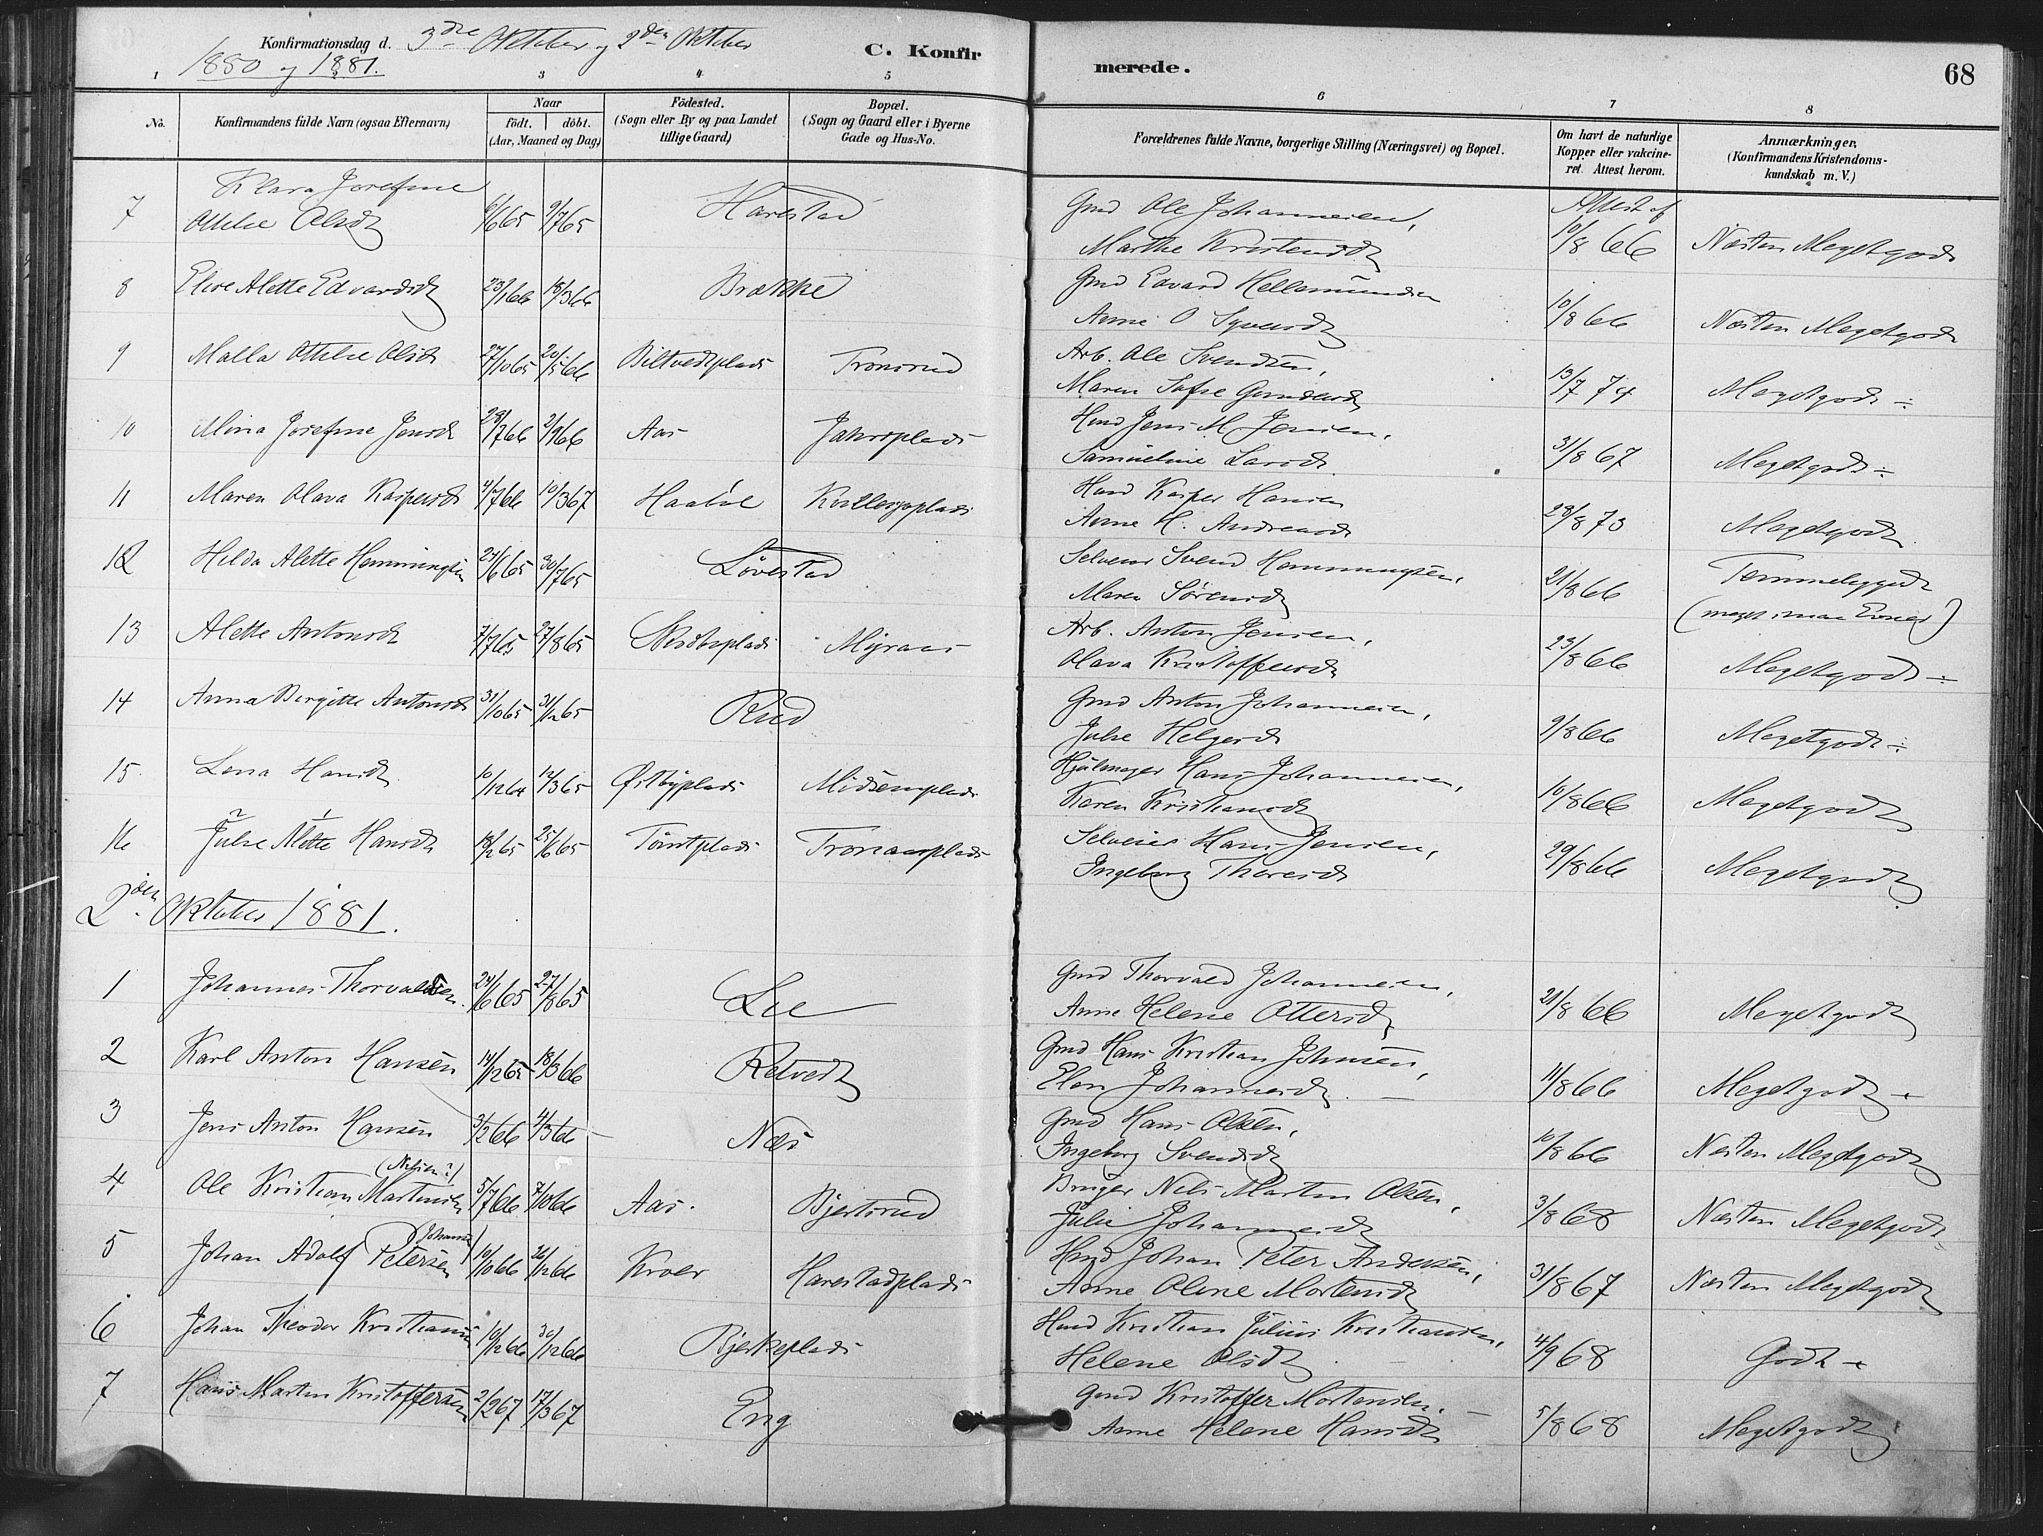 Konfirmationsdag d. 3die Oktober og 2den Oktober
1880 og 1881.
C. Konfirmerede.
68
1 3 4 5 6 7 8
No.
Konfirmandens fulde Navn (ogsaa Efternavn)
Naar
født. døbt.
(Aar, Maaned og Dag)
Fødested.
(Sogn eller By og paa Landet
tillige Gaard)
Bopæl.
(Sogn og Gaard eller i Byerne
Gade og Hus-No.
Forældrenes fulde Navne, borgerlige Stilling (Næringsvei) og Bopæl.
Om havt de naturlige
Kopper eller vakcine-
ret. Attest herom.
Anmærkninger.
(Konfirmandens Kristendoms-
kundskab m. V.)
7 Klara Josefine Harestad Gmd Ole Johannesen, Attest af
Ottilie Olsdt 6/6 65 9/7 65 Marthe Kristensdt 10/8 66 Næsten Megetgodt
8 Elise Alette Edvardsdt 23/1 66 18/3 66 Brække Gmd Edvard Hellemundsen
Anne O Syversdt 10/8 66 Næsten Megetgodt
9 Malla Ottilie Olsdt 27/10 65 20/5 66 Biltvedtplads Tronsrud Arb. Ole Svendsen,
Maren Sofie Gundersdt 13/7 74 Megetgodt ÷
10 Mina Josefine Jensdt 28/7 66 2/9 66 Aas Jahrsplads Hmd Jens M Jensen,
Samueline Larsdt. 31/8 67 Megetgodt ÷
11 Maren Olava Kaspersdt 4/7 66 10/3 67 Haabøl Hmd Kasper Hansen
Anne H. Andreasdt 28/8 73 Megetgodt
12 Hilda Alette Hemmingsen 24/6 65 30/7 65 Løvestad Selveier Svend Hemmingsen,
Maren Sørensdt 21/8 66 Temmeliggodt
(meget smaa Evner)
13 Alette Antonsdt 7/7 65 27/8 65 Skibsplads Myraas Arb. Anton Jensen,
Olava Kristoffersdt 23/8 66 Megetgodt ÷
14 Anna Birgitte Antonsdt 31/10 65 31/12 65 Rud Gmd Anton Johannesen,
Julie Helgesdt 9/8 66 Megetgodt ÷
15. Lena Hansdt 10/12 64 12/3 65 Østbyplads Midsemplads Hjulmager Hans Johannesen,
Karen Kristiansdt 10/8 66 Megetgodt
16 2 1
Julie Alette Hansdt 18/2 65 25/6 65 Tomtplads Tronaasplads Selveier Hans Jensen,
Ingeborg Thoresdt 29/8 66 Megetgodt
2den Oktober 1881.
1 Johannes Thorvaldsen. 24/6 65 27/8 65 Lie Gmd Thorvald Johannesen,
Anne Helene Ottersdt 21/8 66 Megetgodt
2 Karl Anton Hansen 14/12 65 18/3 66 Retvedt Gmd Hans Kristian Johnsen,
Elen Johannesdt 11/8 66 Megetgodt
3 Jens Anton Hansen 3/2 66 4/3 66 Næs Gmd Hans Olsen,
Ingeborg Svendsdt 10/8 66 Næsten Megetgodt
4 (Nilsen?)
Ole Kristian Martinsen 5/7 66 7/10 66 Aas. Bjertsrud Bruger Nils Martin Olsen,
Julie Johannesdt 3/8 68 Næsten Megetgodt
5 Johansen
Johan Adolf Petersen 10/10 66 26/12 66 Kroer Harestadplads Hmd Johan Peter Andersen,
Anne Oline Mortensdt 31/8 67 Næsten Megetgodt
6 Johan Theodor Kristiansen 10/12 66 30/12 66 Bjerkeplads Hmd Kristian Julius Kristiansen,
Helene Olsdt 4/9 68 Godt
7 Hans Martin Kristoffersen 2/2 67 17/3 67 Eng Gmd Kristoffer Mortensen.
Anne Helene Hansdt 5/8 68 Megetgodt